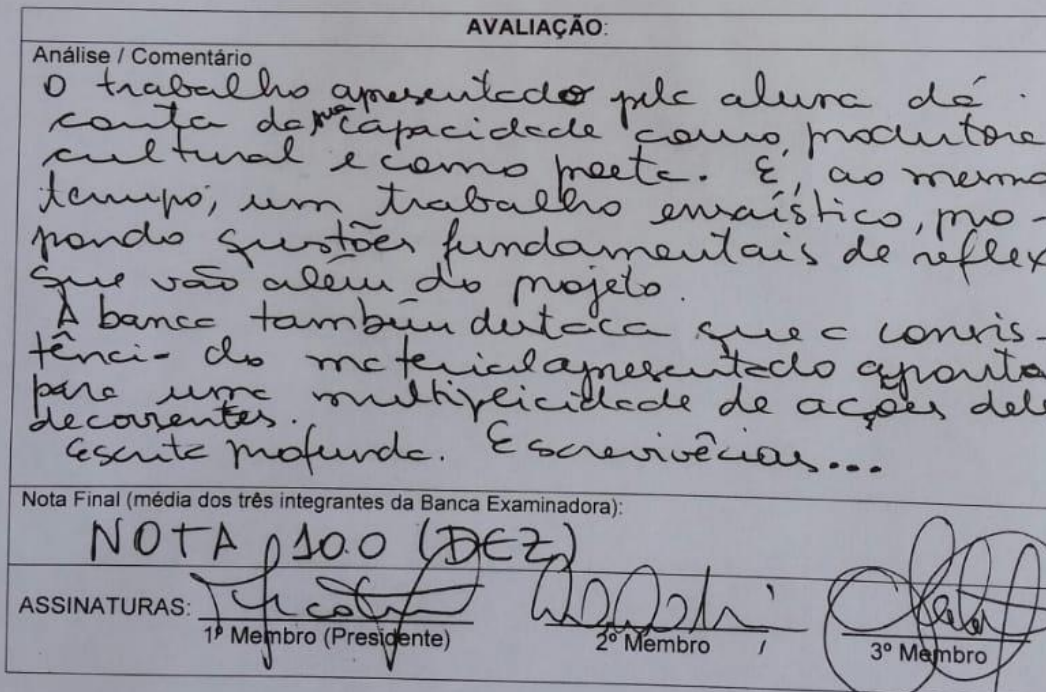 AVALIAÇÃO:
Análise / Comentário
O trabalho apresentado pela aluna dá
conta da sua capacidade como produtora
cultural e como poeta. É, ao mesmo
tempo, um trabalho ensaístico, pro-
pondo questões fundamentais de reflex
que vão além do projeto.
A banca também destaca que a consis-
tência do material apresentado aponta
para uma multiplicidade de ações dele
decorrentes.
Escrita profunda. Escrevivêcias...
Nota Final (média dos três integrantes da Banca Examinadora):
NOTA 10.0 (DEZ)
ASSINATURAS:
1º Membro (Presidente) 2º Membro 3º Membro